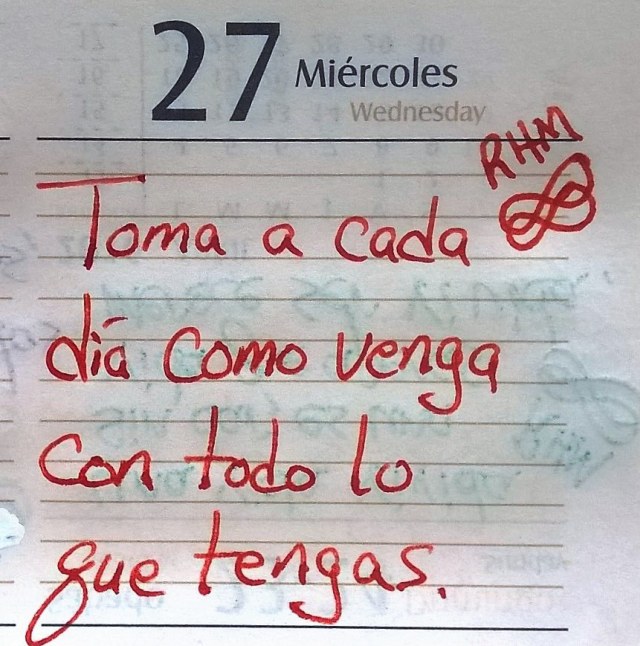 27 Miércoles
Wednesday
RHM
Toma a cada
día como venga
con todo lo
que tengas.